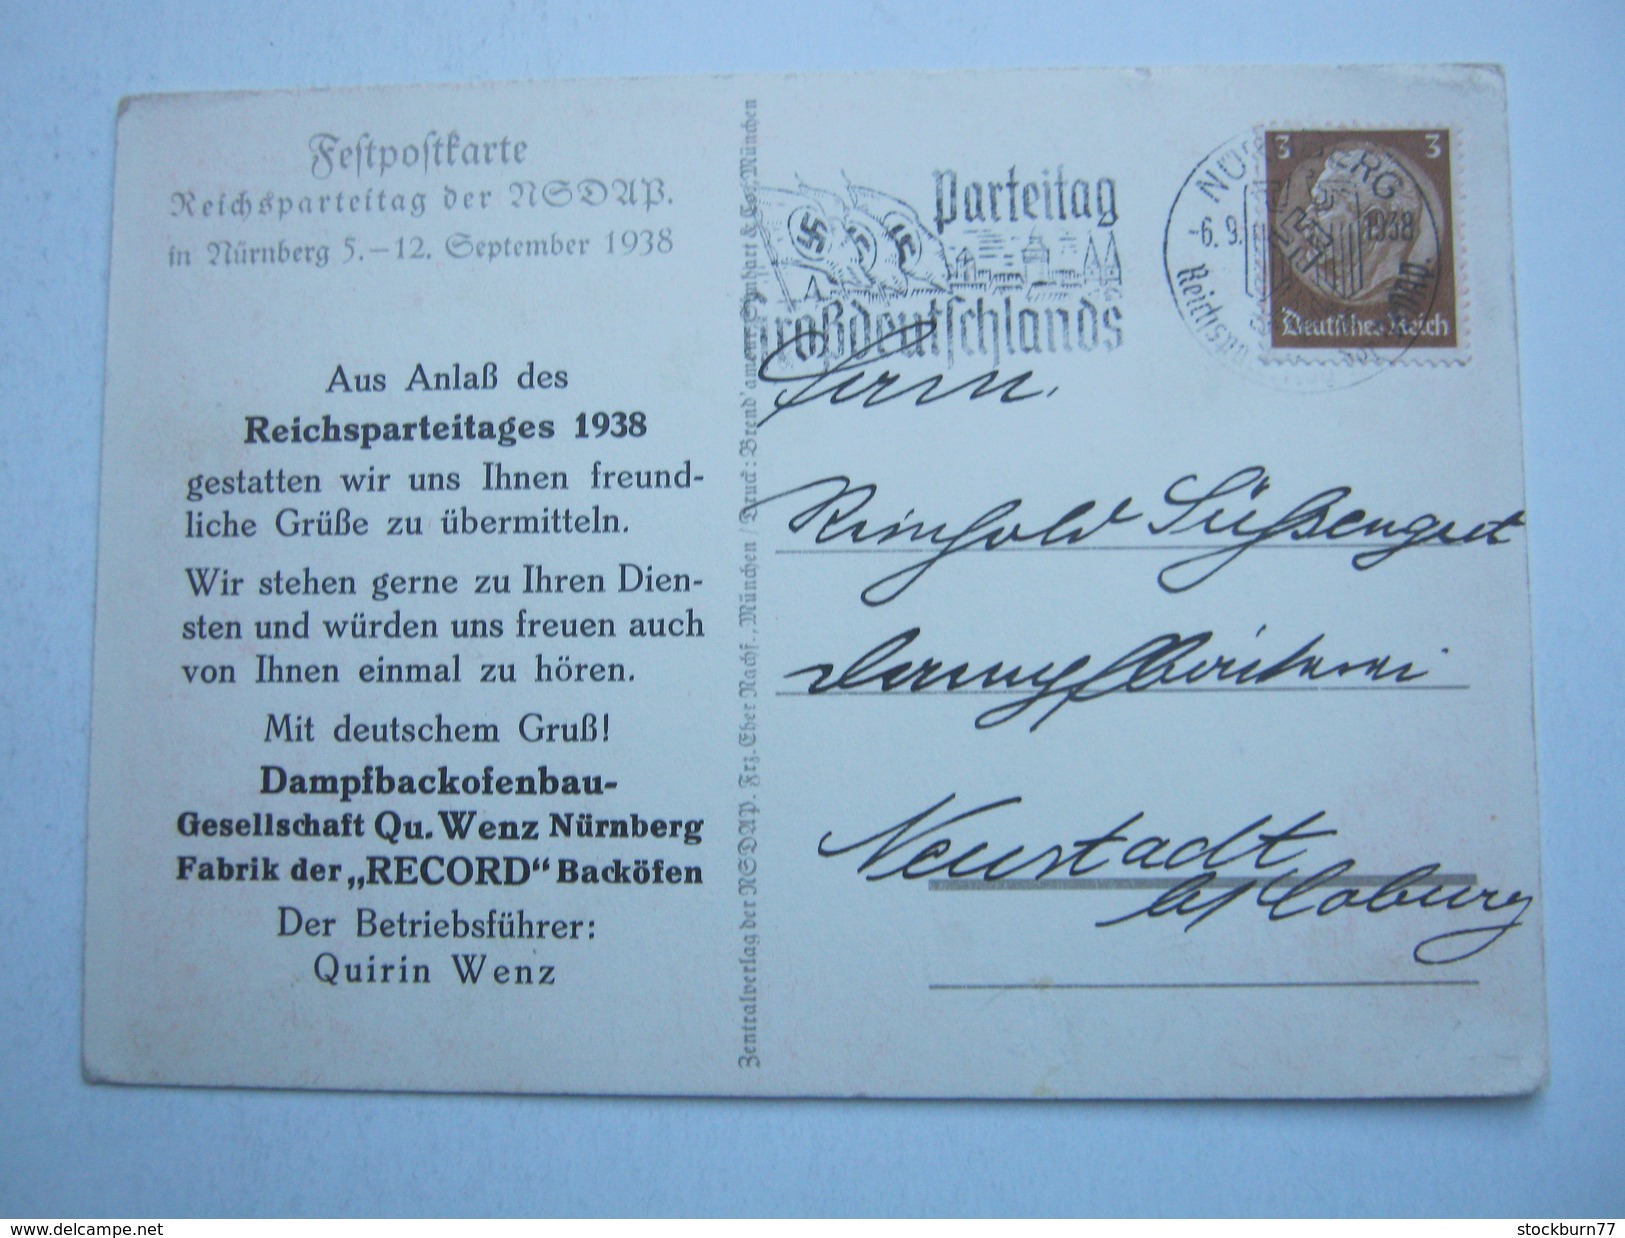 Festpostkarte
Reichsparteitag der NSDAP.
in Nürnberg 5.–12. September 1938
Aus Anlaß des
Reichsparteitages 1938
gestatten wir uns Ihnen freund-
liche Grüße zu übermitteln.
Wir stehen gerne zu Ihren Dien-
sten und würden uns freuen auch
von Ihnen einmal zu hören.
Mit deutschem Gruß!
Dampfbackofenbau-
Gesellschaft Qu. Wenz Nürnberg
Fabrik der „RECORD“ Backöfen
Der Betriebsführer:
Quirin Wenz
Zentralverlag der NSDAP. Frz. Eher Nachf., München / Druck: Brend'amour, Simhart & Co., München
Parteitag
Großdeutschlands
NÜRNBERG
-6.9. 1938
3 3
Deutsches Reich
Firm.
Reinhold Süßengut
Dampfbäckerei
Neustadt
b/ Coburg
delcampe.net
stockburn77